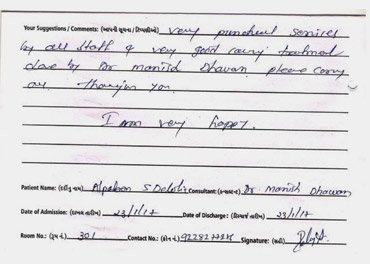 Your Suggestions / Comments: (આપની સૂચના / ટિપ્પણીઓ) very punctual services
by all staff & very good caring treatment
done by Dr manish Dhawan. please carry
on. Thankyou you.
I am very happy.
Patient Name: (દર્દીનું નામ) Alpaben S Consultant: (કન્સલ્ટન્ટ) Dr. Manish Dhawan
Date of Admission: (દાખલ તારીખ) 23/1/17 Date of Discharge: (ડિસ્ચાર્જ તારીખ) 23/1/17
Room No.: (રૂમ નં.) 301 Contact No.: (ફોન નં.) Signature: (સહી)